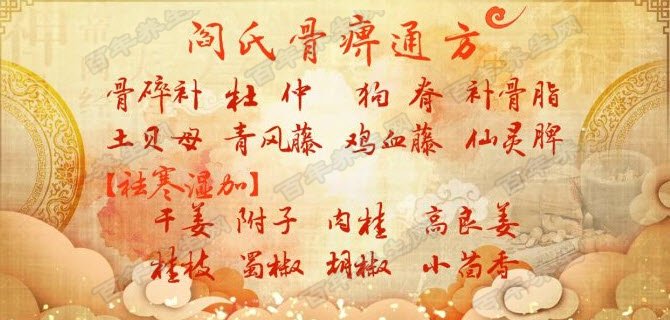 阎氏骨痹通方
骨碎补 杜仲 狗脊 补骨脂
土贝母 青风藤 鸡血藤 仙灵脾
【祛寒湿加】
干姜 附子 肉桂 高良姜
桂枝 蜀椒 胡椒 小茴香
百年养生网